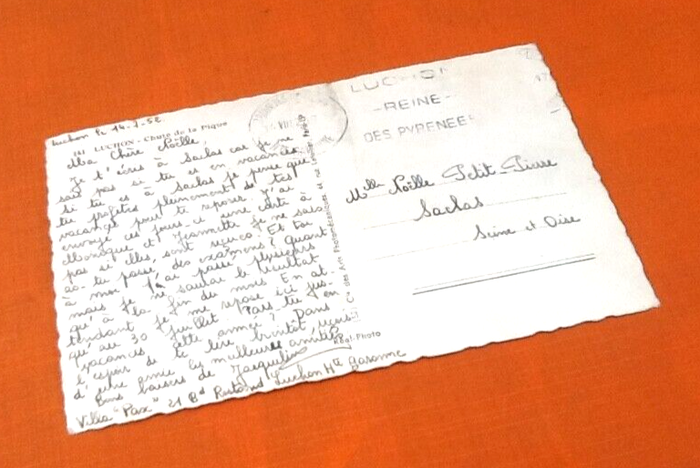 Luchon le 14-7-52
LUCHON - Chute de la Pique
Ma Chère Noëlle,
Je t'écris à Saclas car je ne
sais pas si tu es en vacances
Si tu es à Saclas je pense que
tu profites pleinement de tes
vacances pour te reposer. J'ai
envoyé ces jours-ci une carte à
Monique et Jeannette je ne sais
pas si elles sont reçues. Et toi
as-tu passé des examens? quant
à moi j'ai passé plusieurs
mais je ne saurai le résultat
qu'à la fin du mois. En at-
tendant je me repose ici jus-
qu'au 30 juillet. Pars-tu en
vacances cette année? Dans
l'espoir de te lire bientôt
d'une amie les meilleures amitiés
Bons baisers de Jacqueline
Villa "Pax" 21 Bd Rostand Luchon Hte Garonne
LUCHON
-REINE-
DES PYRENEES
Mlle Noëlle Petit-Pierre
Saclas
Seine et Oise